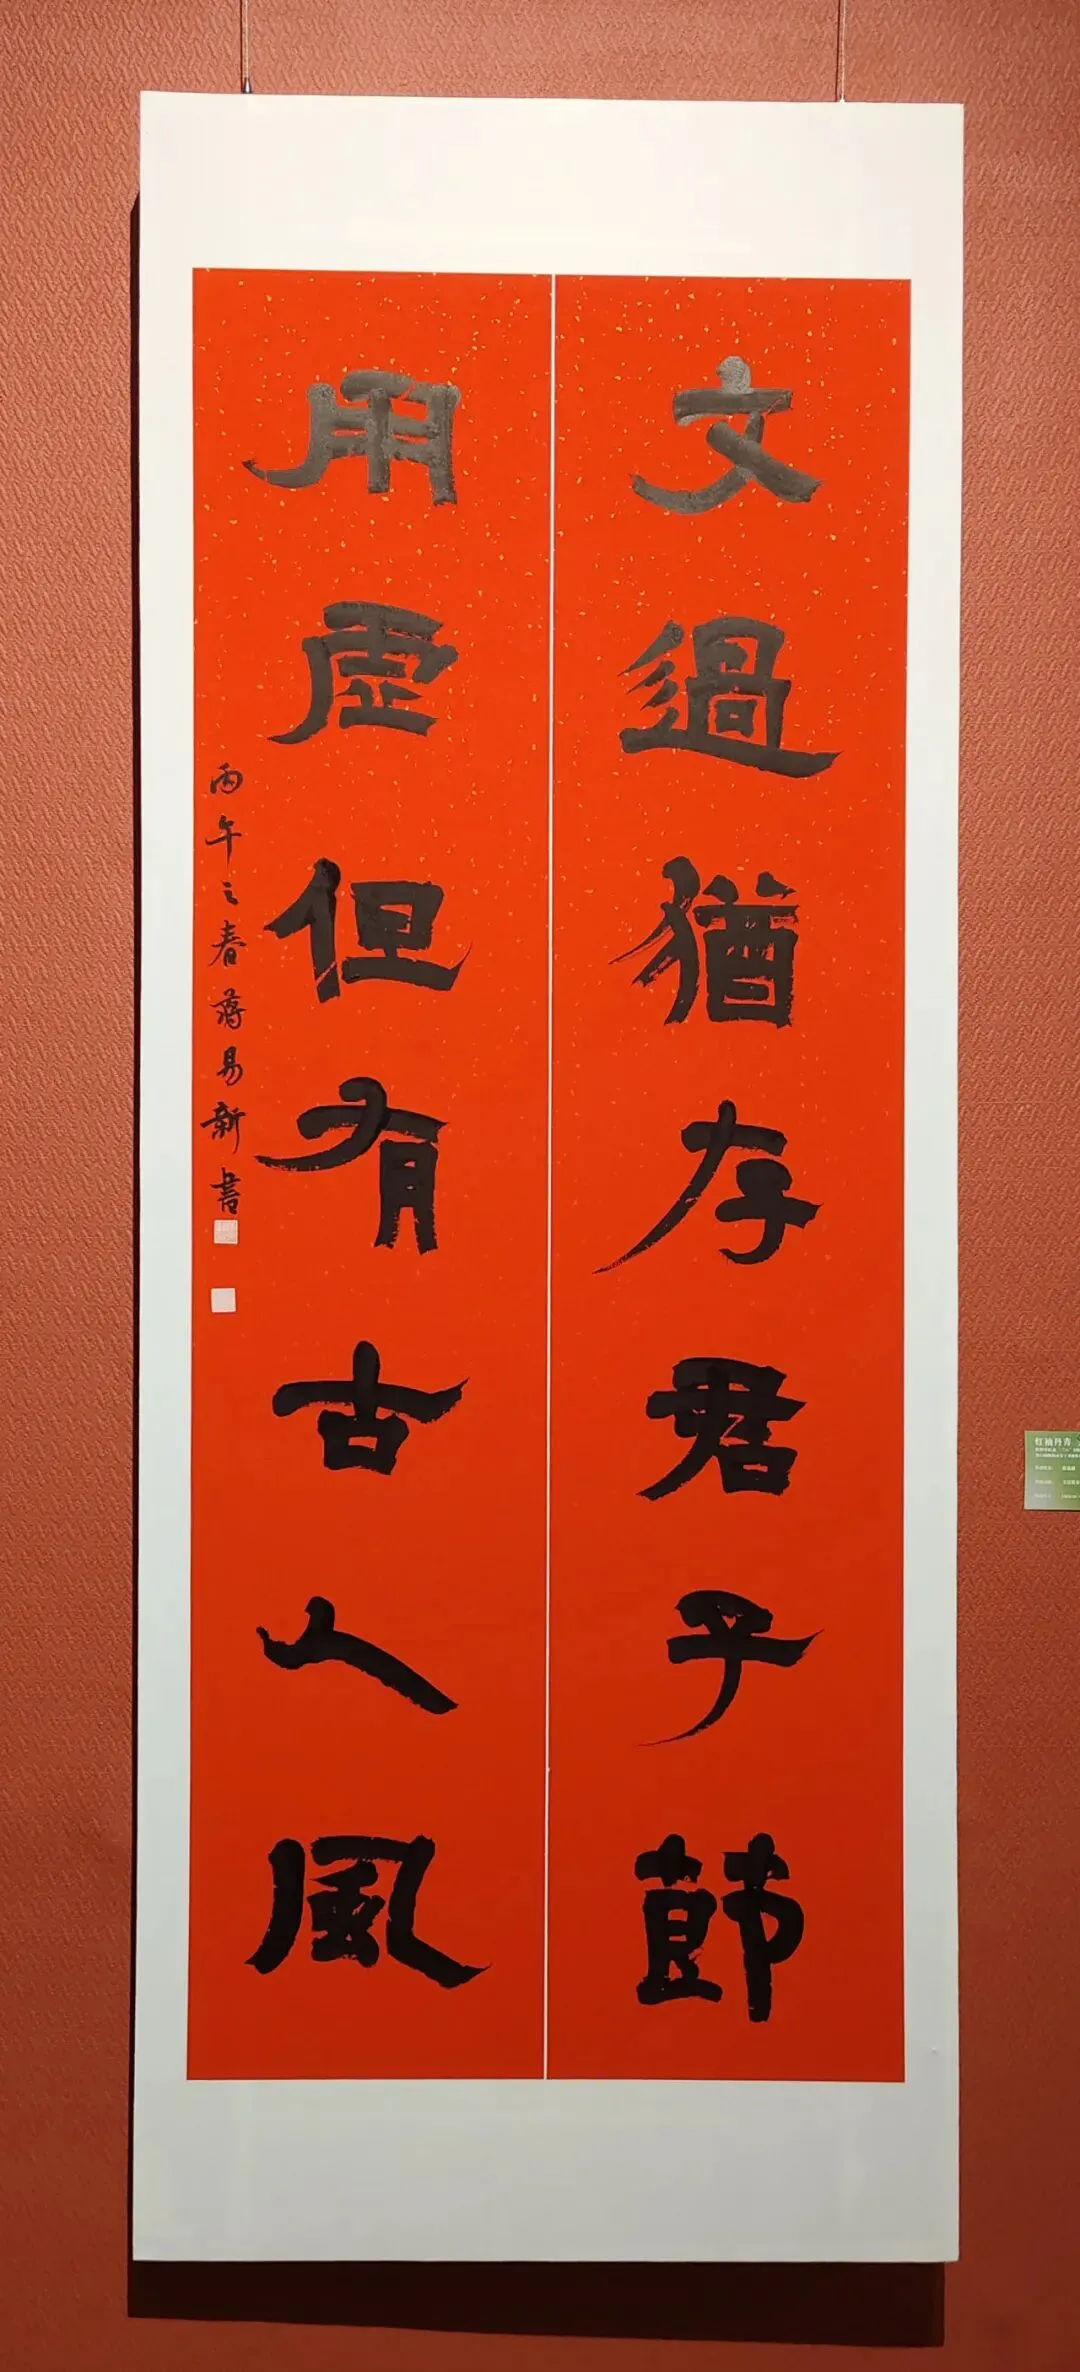 文過猶存君子節
用虛但有古人風
丙午之春蔣易新書
红袖丹青